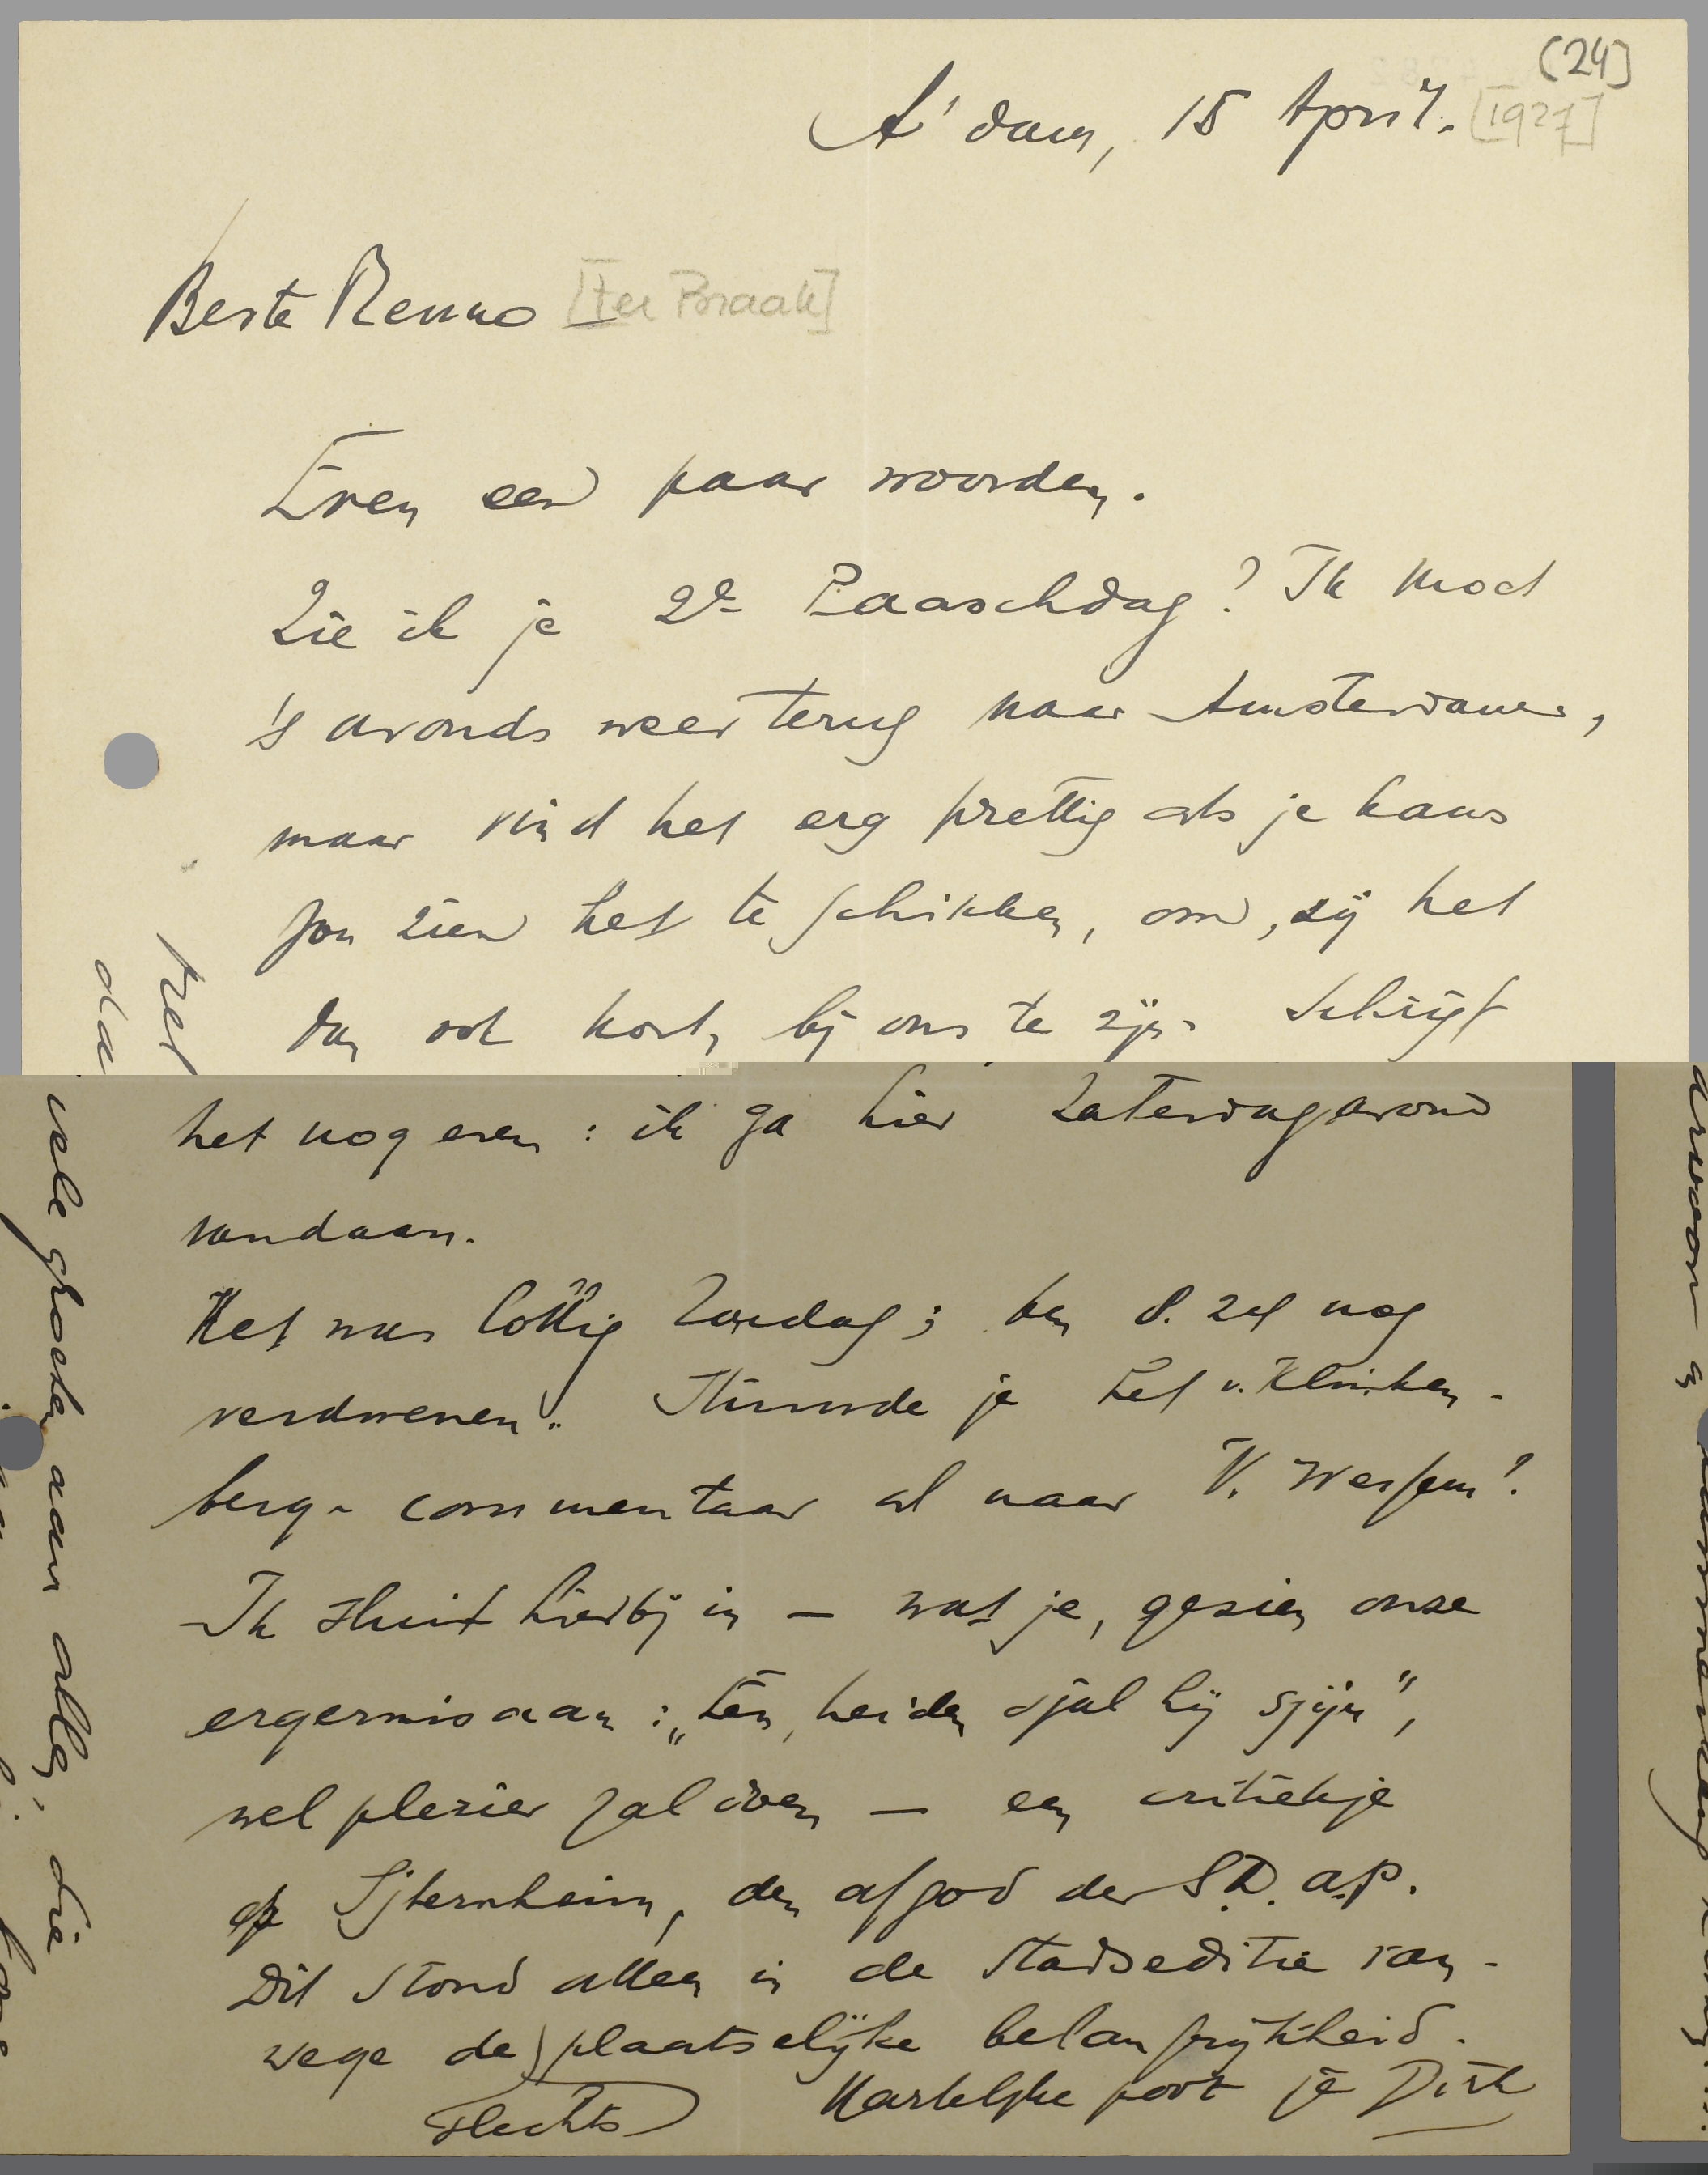 (24)
A'dam, 15 April. [1927]
Beste Menno [ter Braak]
Even een paar woorden.
Zie ik je 2e Paaschdag? Ik moet
's avonds weer terug naar Amsterdam,
maar vind het erg prettig als je kans
zou zien het te schikken, om, zij het
dan ook kort, bij ons te zijn. Schrijf
het nog even: ik ga hier Zaterdagavond
vandaan.
Het was lollig Zondag; ben d. zelf nog
verdwenen. Stuurde je het v. Klinken-
berg-commentaar al naar V. Wessem?
Ik sluit hierbij in — wat je, gezien onze
ergernis aan: „Een heiden sjal hij sjijn",
wel plezier zal doen — een critiekje
op Sjternheim, den afgod der S.D.A.P.
Dit stond alleen in de stadseditie van-
wege de plaatselijke belangrijkheid.
slechts
Hartelijke poot je Dirk
vele groeten aan allen, die